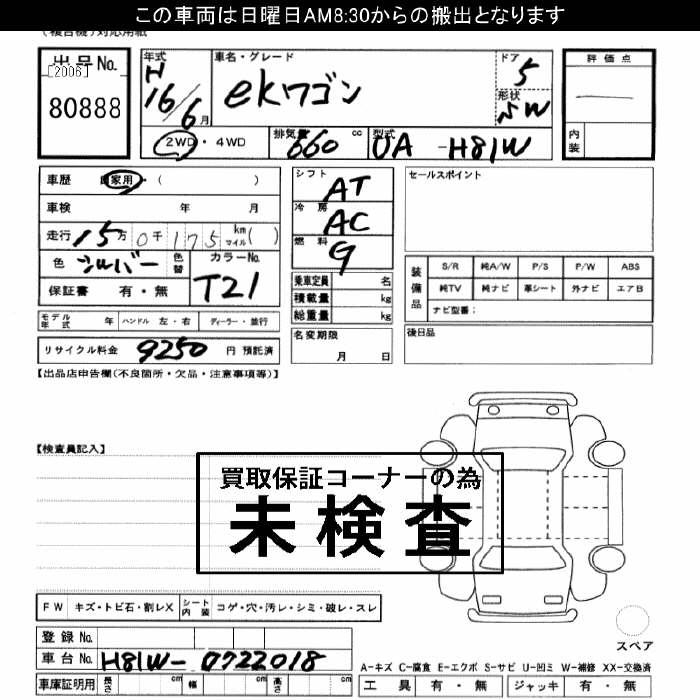 この車両は日曜日AM8:30からの搬出となります
(複合機)対応用紙
出品No.
[2006]
80888
年式
H
16/6月
車名・グレード
ekワゴン
ドア
5
形状
SW
2WD・4WD
排気量
660 cc
型式
UA -H81W
評価点
内装
車歴 自家用・( )
車検 年 月
走行 15万0千175 km マイル( )
色 シルバー 色替
カラーNo.
T21
保証書 有・無
モデル年式 年 ハンドル 左・右 ディーラー・並行
リサイクル料金 9250 円 預託済
シフト
AT
冷房
AC
燃料
G
乗車定員 名
積載量 kg
総重量 kg
名変期限
月 日
セールスポイント
装備品
S/R 純A/W P/S P/W ABS
純TV 純ナビ 革シート 外ナビ エアB
ナビ型番:
後日品
【出品店申告欄(不良箇所・欠品・注意事項等)】
【検査員記入】
買取保証コーナーの為
未検査
FW キズ・トビ石・割レX
シート内装 コゲ・穴・汚レ・シミ・破レ・スレ
登録No.
車台No. H81W-0722018
車庫証明用 長さ cm 幅 cm 高さ cm
スペア
A-キズ C-腐食 E-エクボ S-サビ U-凹ミ W-補修 XX-交換済
工具 有・無 ジャッキ 有・無